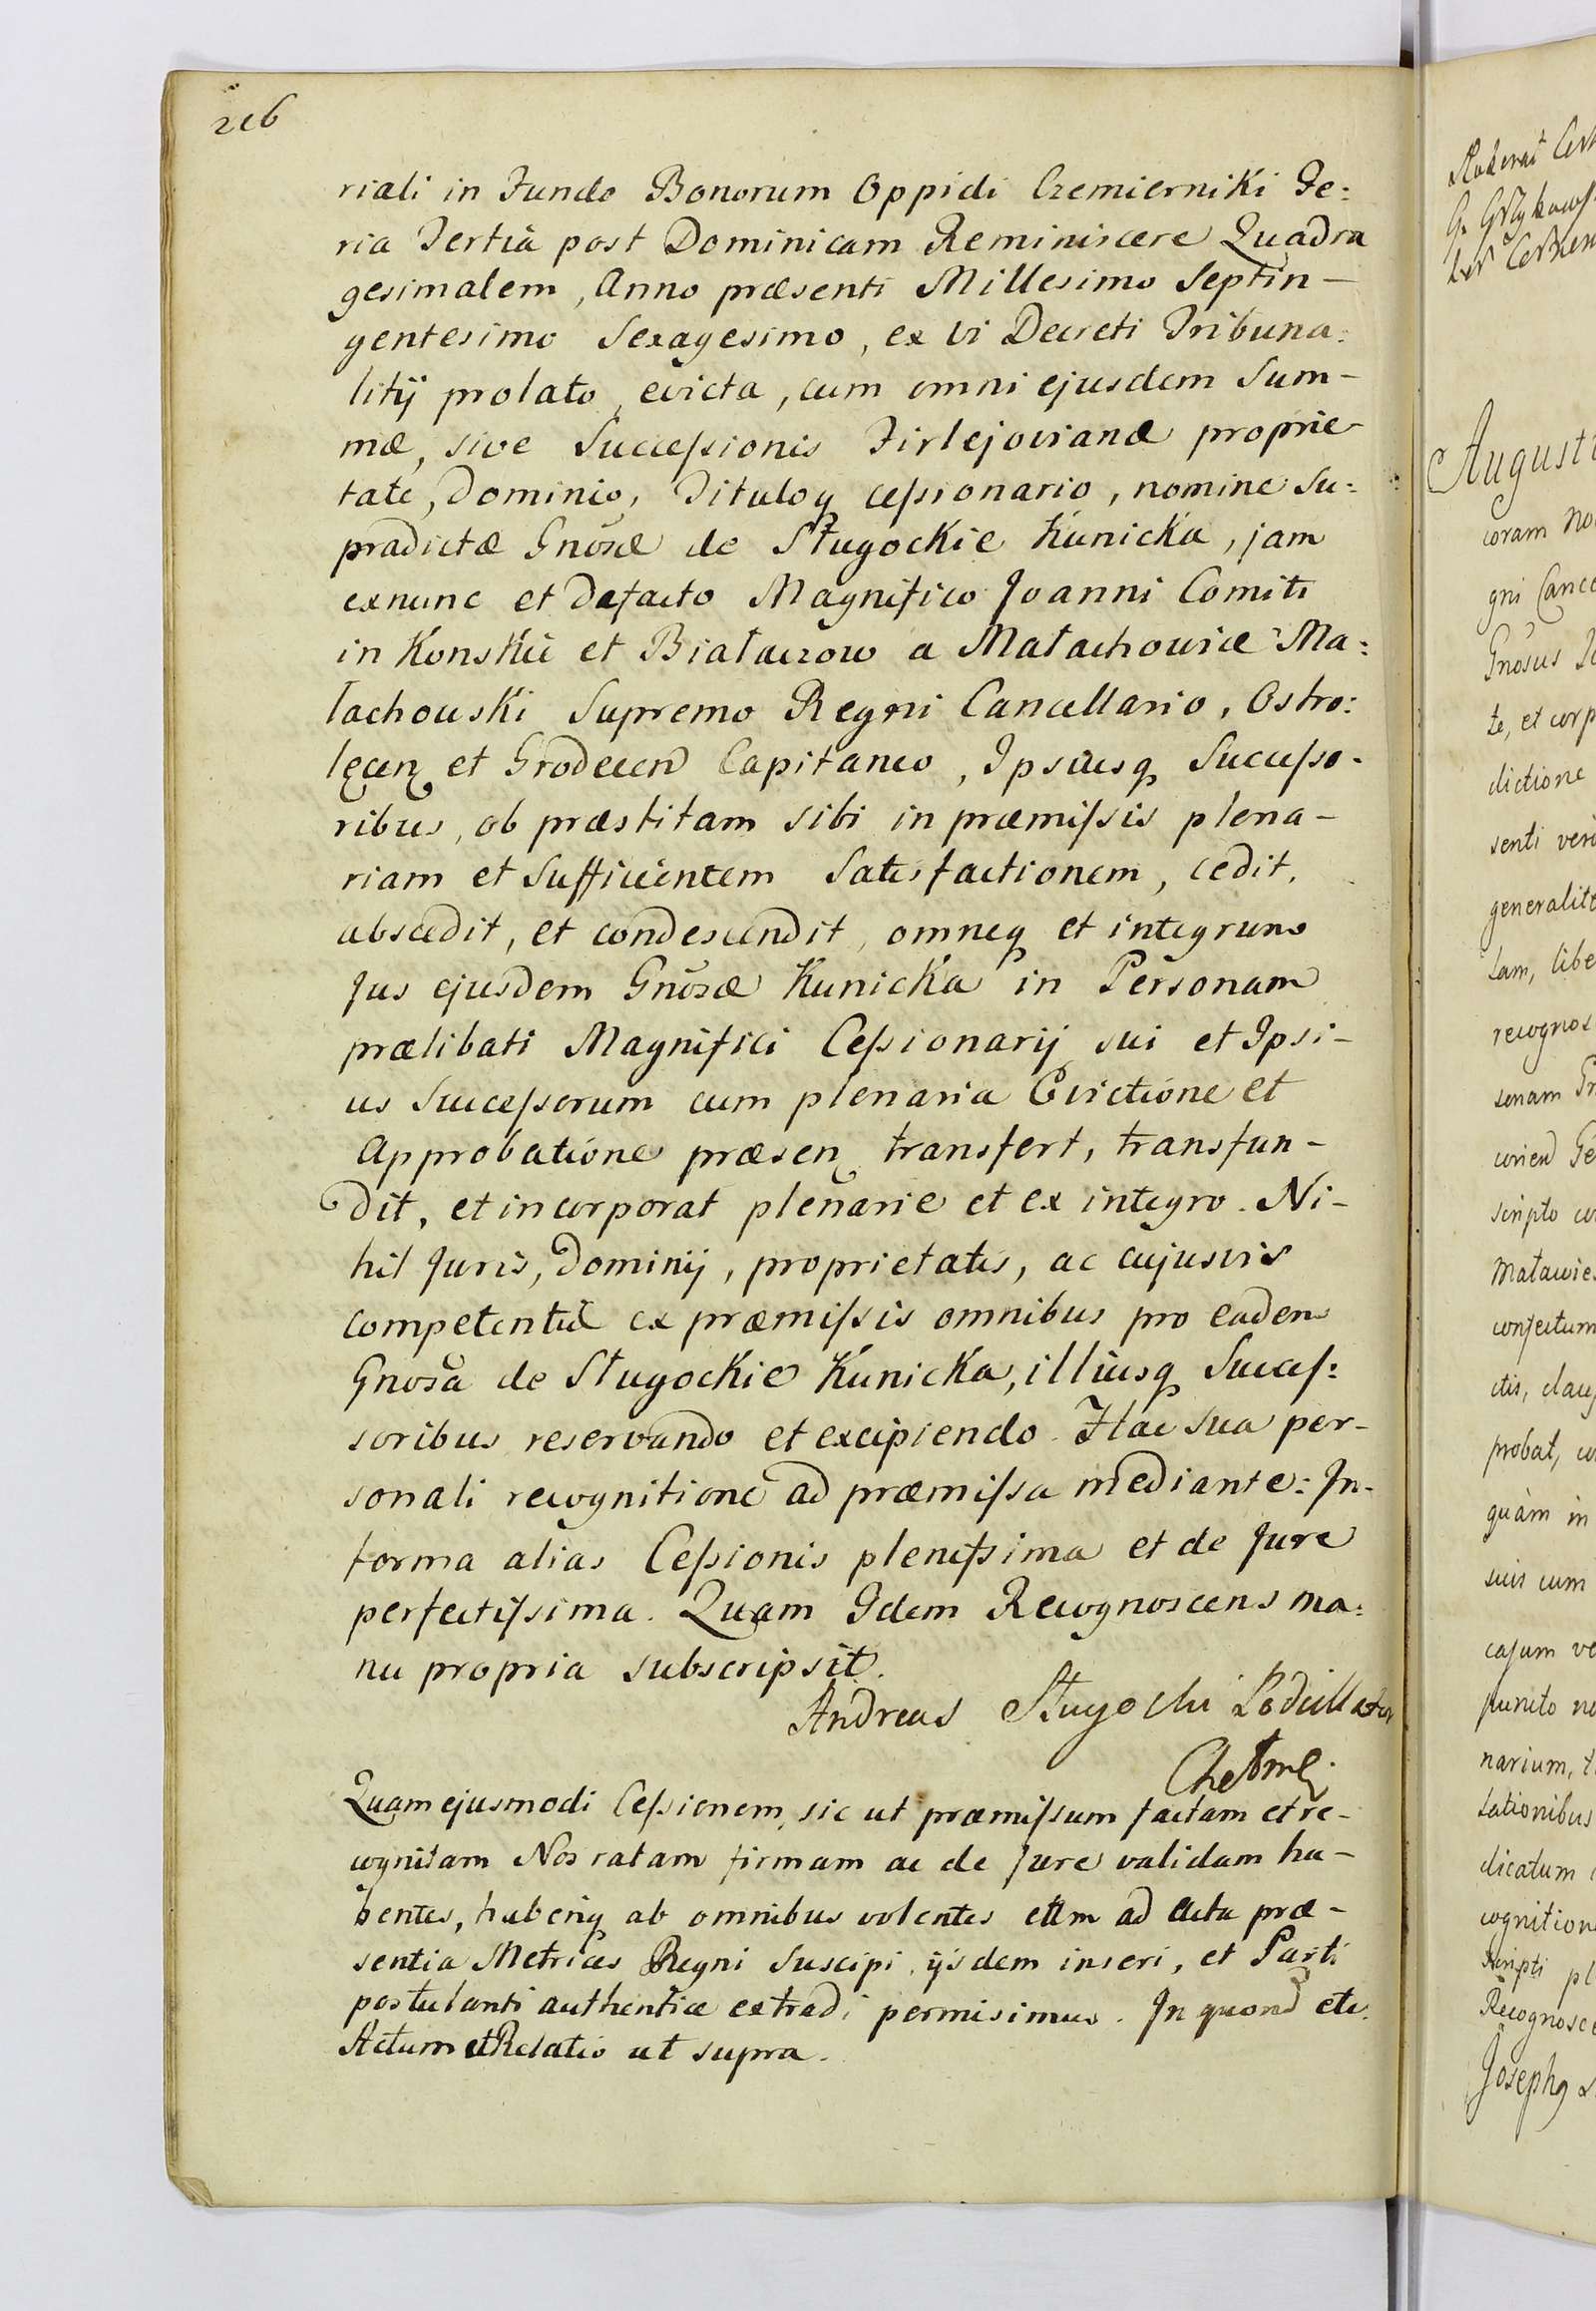 216
riali in Fundo Bonorum Oppidi Czemierniki Fe:
ria Tertia post Dominicam Reminiscere Quadra
gesimalem, Anno præsenti Millesimo Septin-
gentesimo Sexagesimo, ex vi Decreti Tribuna:
litij prolato, evicta, cum omni ejusdem Sum-
mæ, sive Succeſsionis Firlejovianæ proprie-
tate, Dominio, Tituloq ceſsionario, nomine Su:
prædictæ Gnosæ de Sługockie Kunicka, jam
exnunc et defacto Magnifico Joanni Comiti
in Konskie et Białaczow a Małachowice Ma:
łachowski Supremo Regni Cancellario, Ostro:
łęcen et Grodecen Capitaneo, Ipsiusq Succeſso-
ribus, ob præstitam sibi in præmiſsis plena-
riam et Sufficientem Satisfactionem, cedit,
abscedit, et condescendit, omneq et integrum
Jus ejusdem Gnosæ Kunicka in Personam
prælibati Magnifici Ceſsionarij sui et Ipsi-
us Succeſsorum cum plenaria Evictione et
Approbatione præsen transfert, transfun-
dit, et incorporat plenarie et ex integro. Ni-
hil Juris, Dominij, proprietatis, ac cujusvis
competentiæ ex præmiſsis omnibus pro eadem
Gnosa de Sługockie Kunicka, illiusq Succeſ:
soribus reservando et excipiendo. Hac sua per-
sonali recognitione ad præmiſsa mediante: In-
forma alias Ceſsionis pleniſsima et de Jure
perfectiſsima. Quam Idem Recognoscens ma:
nu propria subscripsit.
Andreas Sługocki
Chełm
Quam ejusmodi Ceſsionem, sic ut præmiſsum factam et re-
cognitam Nos ratam firmam ac de Jure validam ha-
bentes, haberiq ab omnibus volentes eam ad Acta præ-
sentia Metrices Regni Suscipi, ijsdem inseri, et Parti
postulanti authentice extradi permisimus. In quord etc.
Actum et Relatio ut supra.
Augusti
coram
gni
Gnosus
te, et
dictione
senti
generalite
tam,
recognos
scripto
conjectum
probat,
quàm in
suis cum
narium,
tationibus
dicatum
cognitione
Recognosce
Josephq